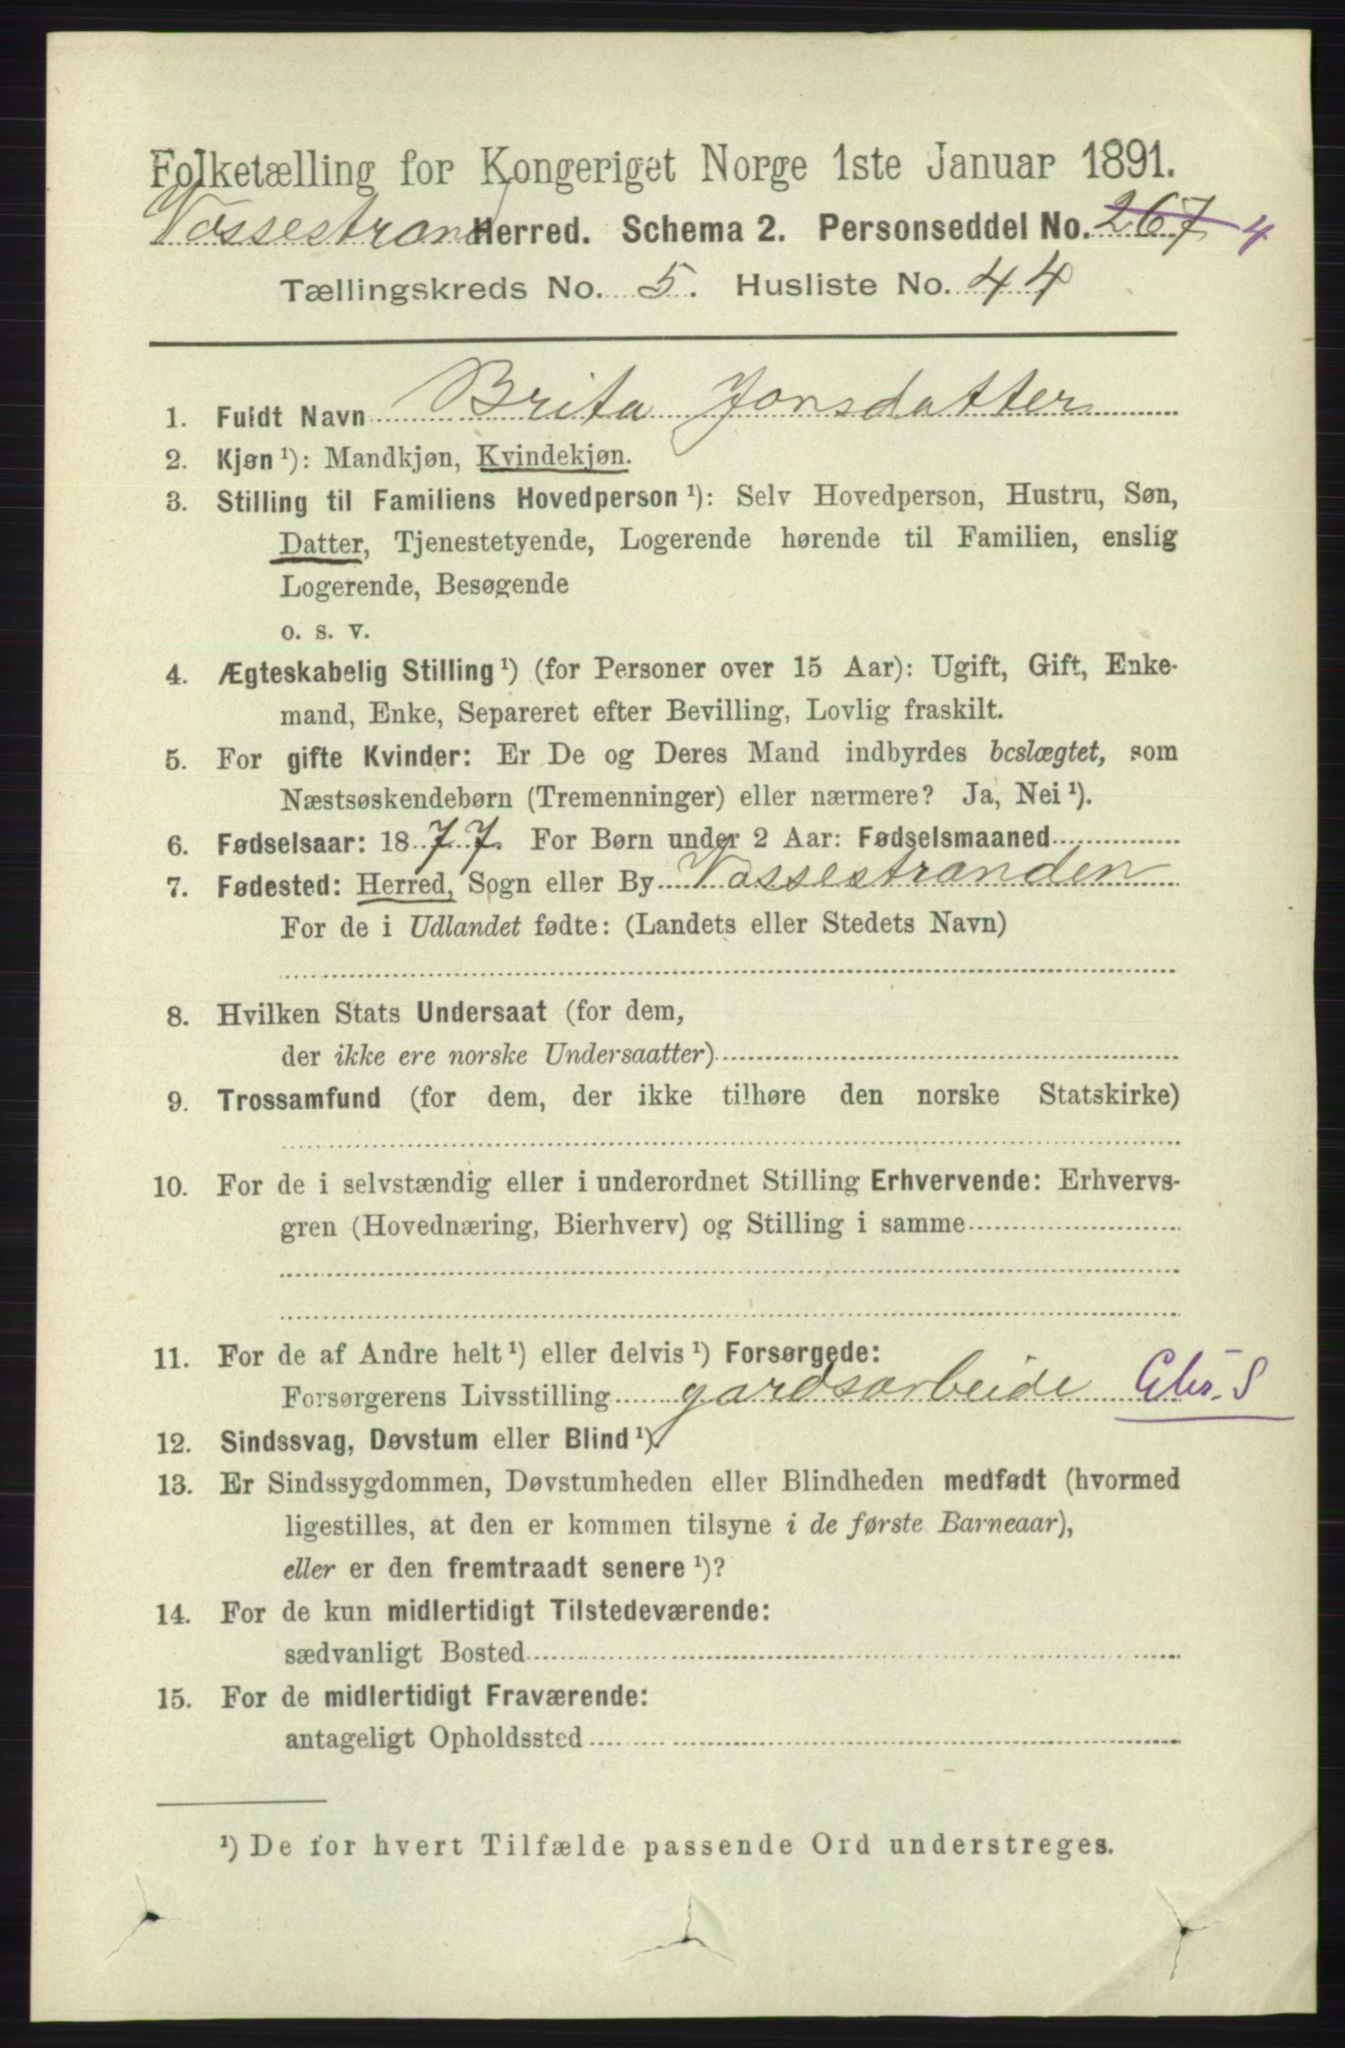 Folketælling for Kongeriget Norge 1ste Januar 1891.
Vossestrand Herred. Schema 2. Personseddel No. 267 4
Tællingskreds No. 5. Husliste No. 44
1. Fuldt Navn Brita Jonsdatter
2. Kjøn ¹): Mandkjøn, Kvindekjøn.
3. Stilling til Familiens Hovedperson ¹): Selv Hovedperson, Hustru, Søn,
Datter, Tjenestetyende, Logerende hørende til Familien, enslig
Logerende, Besøgende
o. s. v.
4. Ægteskabelig Stilling ¹) (for Personer over 15 Aar): Ugift, Gift, Enke-
mand, Enke, Separeret efter Bevilling, Lovlig fraskilt.
5. For gifte Kvinder: Er De og Deres Mand indbyrdes beslægtet, som
Næstsøskendebørn (Tremenninger) eller nærmere? Ja, Nei ¹).
6. Fødselsaar: 1877. For Børn under 2 Aar: Fødselsmaaned
7. Fødested: Herred, Sogn eller By Vossestranden
For de i Udlandet fødte: (Landets eller Stedets Navn)
8. Hvilken Stats Undersaat (for dem,
der ikke ere norske Undersaatter)
9. Trossamfund (for dem, der ikke tilhøre den norske Statskirke)
10. For de i selvstændig eller i underordnet Stilling Erhvervende: Erhvervs-
gren (Hovednæring, Bierhverv) og Stilling i samme
11. For de af Andre helt ¹) eller delvis ¹) Forsørgede:
Forsørgerens Livsstilling gardsarbeide
12. Sindssvag, Døvstum eller Blind ¹).
13. Er Sindssygdommen, Døvstumheden eller Blindheden medfødt (hvormed
ligestilles, at den er kommen tilsyne i de første Barneaar),
eller er den fremtraadt senere ¹)?
14. For de kun midlertidigt Tilstedeværende:
sædvanligt Bosted
15. For de midlertidigt Fraværende:
antageligt Opholdssted
¹) De for hvert Tilfælde passende Ord understreges.